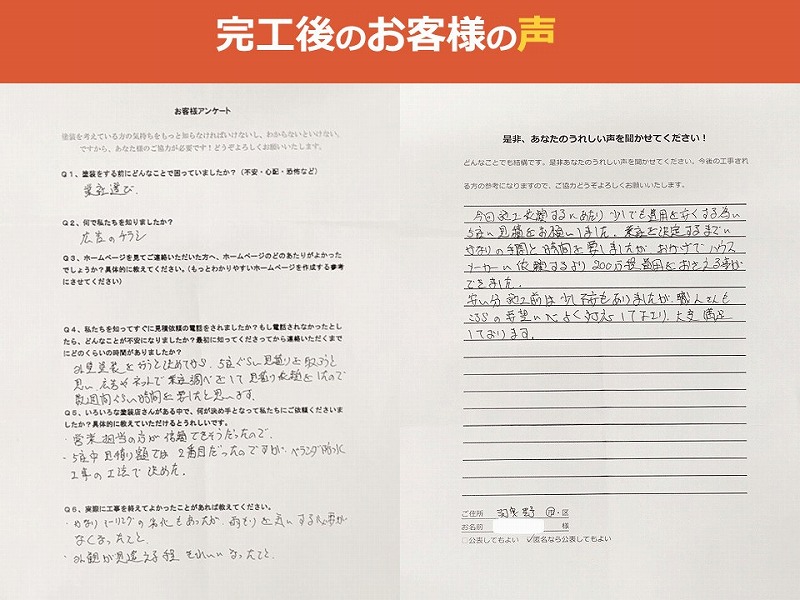 完工後のお客様の声
お客様アンケート
塗装を考えている方の気持ちをもっと知らなければいけないし、わからないといけない。
ですから、あなた様のご協力が必要です！どうぞよろしくお願いいたします。
Q１、塗装をする前にどんなことで困っていましたか？（不安・心配・恐怖など）
業者選び.
Q２、何で私たちを知りましたか？
広告のチラシ
Q３、ホームページを見てご連絡いただいた方へ、ホームページのどのあたりがよかった
でしょうか？具体的に教えてください。（もっとわかりやすいホームページを作成する参考
にさせてください）
Q４、私たちを知ってすぐに見積依頼の電話をされましたか？もし電話されなかったとし
たら、どんなことが不安になりましたか？最初に知ってくださってから連絡いただくまで
にどのくらいの時間がありましたか？
外壁塗装を行うと決めてから、5社ぐらい見積りを取ろうと
思い、広告やネットで業者調べをして見積り依頼をしたので
数週間ぐらい時間を要したと思います。
Q５、いろいろな塗装店さんがある中で、何が決め手となって私たちにご依頼くださいま
したか？具体的に教えていただけるとうれしいです。
・営業担当の方が信頼できそうだったので.
・5社中見積り額では2番目だったのですが、ベランダ防水
工事の工法で決めた.
Q６、実際に工事を終えてよかったことがあれば教えてください。
・かなりシーリングの劣化もあったが、雨もりを気にする心配が
なくなったこと.
・外観が見違える程きれいになったこと.
是非、あなたのうれしい声を聞かせてください！
どんなことでも結構です。是非あなたのうれしい声を聞かせてください。今後の工事され
る方の参考になりますので、ご協力どうぞよろしくお願いいたします。
今回施工依頼するにあたり少しでも費用を安くする為に
5社に見積をお願いしました。業者を決定するまでに
かなりの手間と時間を要しましたが おかげでハウス
メーカーに依頼するより200万程費用をおさえる事が
できました.
安い分施工前は少し不安もありましたが、職人さんも
こちらの要望に心よく対応しており、大変満足
しております。
ご住所 羽曳野 市・区
お名前 様
□公表してもよい ✓匿名なら公表してもよい